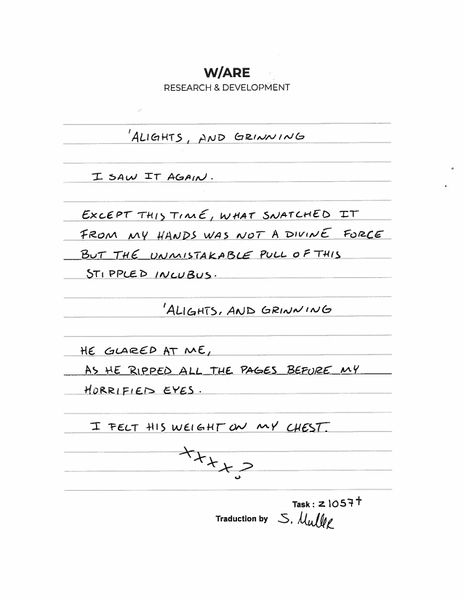 W/ARE
RESEARCH & DEVELOPMENT
'ALIGHTS, AND GRINNING
I SAW IT AGAIN.
EXCEPT THIS TIME, WHAT SNATCHED IT
FROM MY HANDS WAS NOT A DIVINE FORCE
BUT THE UNMISTAKABLE PULL OF THIS
STIPPLED INCUBUS.
'ALIGHTS, AND GRINNING
HE GLARED AT ME,
AS HE RIPPED ALL THE PAGES BEFORE MY
HORRIFIED EYES.
I FELT HIS WEIGHT ON MY CHEST.
XXXX?
Task : Z1057†
Traduction by S. Muller